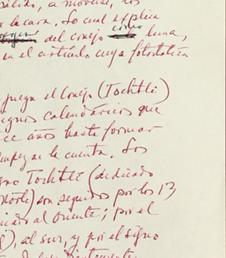 a moverse, los
la cara. Lo cual explica
del conejo como luna,
en el artículo cuya fotostática
juega el conejo (Tochtli)
signos calendáricos que
ce años hasta formar
empezar la cuenta. Los
Tochtli (dedicado
norte) son seguidos por los 13
al Oriente; por el
), al sur, y por el signo